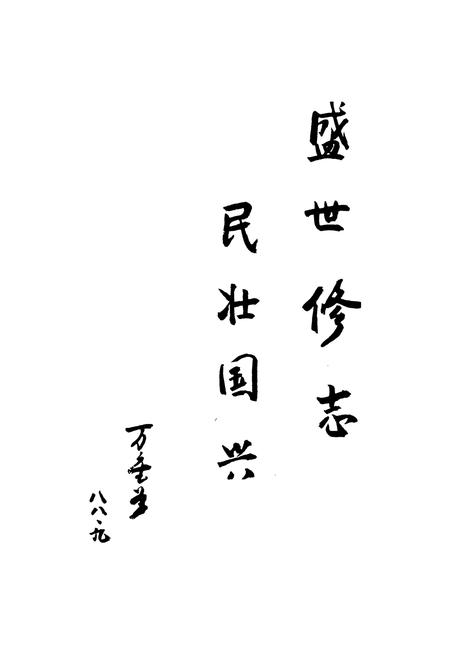 盛世修志
民壮国兴
万
八八·九